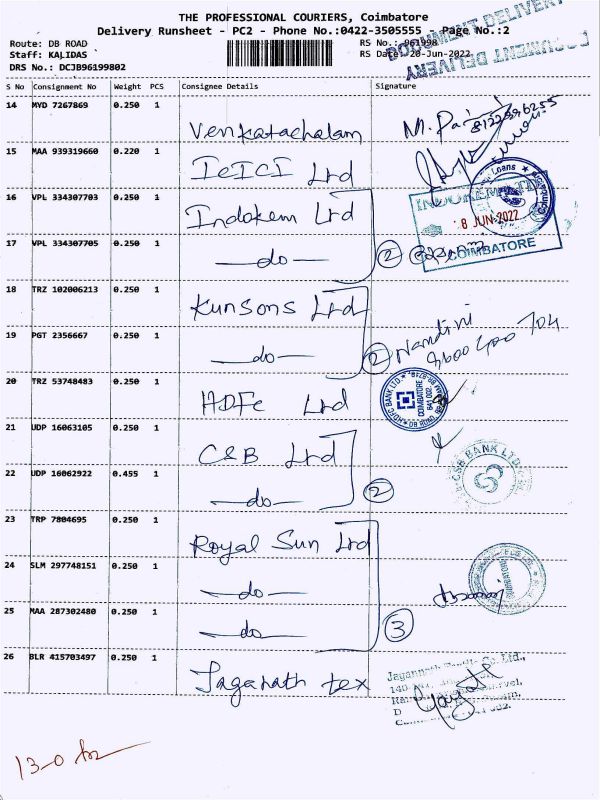 THE PROFESSIONAL COURIERS, Coimbatore
Delivery Runsheet - PC2 - Phone No.:0422-3505555 Page No.:2
DOCUMENT DELIVERY
DOCUMENT DELIVERY
Route: DB ROAD RS No.: 961998
Staff: KALIDAS RS Date: 20-Jun-2022
DRS No.: DCJB96199802
S No Consignment No Weight PCS Consignee Details Signature
14 MYD 7267869 0.250 1 Venkatachalam
8122696255
15 MAA 939319660 0.220 1 ICICI Ltd
16 VPL 334307703 0.250 1 Indokem Ltd
Loans
INDOKEM
8 JUN 2022
COIMBATORE
17 VPL 334307705 0.250 1 —do— 2
18 TRZ 102006213 0.250 1 Kunsons Ltd
19 PGT 2356667 0.250 1 —do— 2 Nandini
9600 400 704
20 TRZ 53748483 0.250 1 HDFC Ltd
HDFC BANK LTD. COIMBATORE 641 002. DB ROAD
21 UDP 16063105 0.250 1 CSB Ltd
CSB BANK LTD
22 UDP 16062922 0.455 1 —do— 2
23 TRP 7804695 0.250 1 Royal Sun Ltd
24 SLM 297748151 0.250 1 —do—
25 MAA 287302480 0.250 1 —do— 3
26 BLR 415703497 0.250 1 Jaganath tex
Jagannath Co. Ltd.,
140
13-0